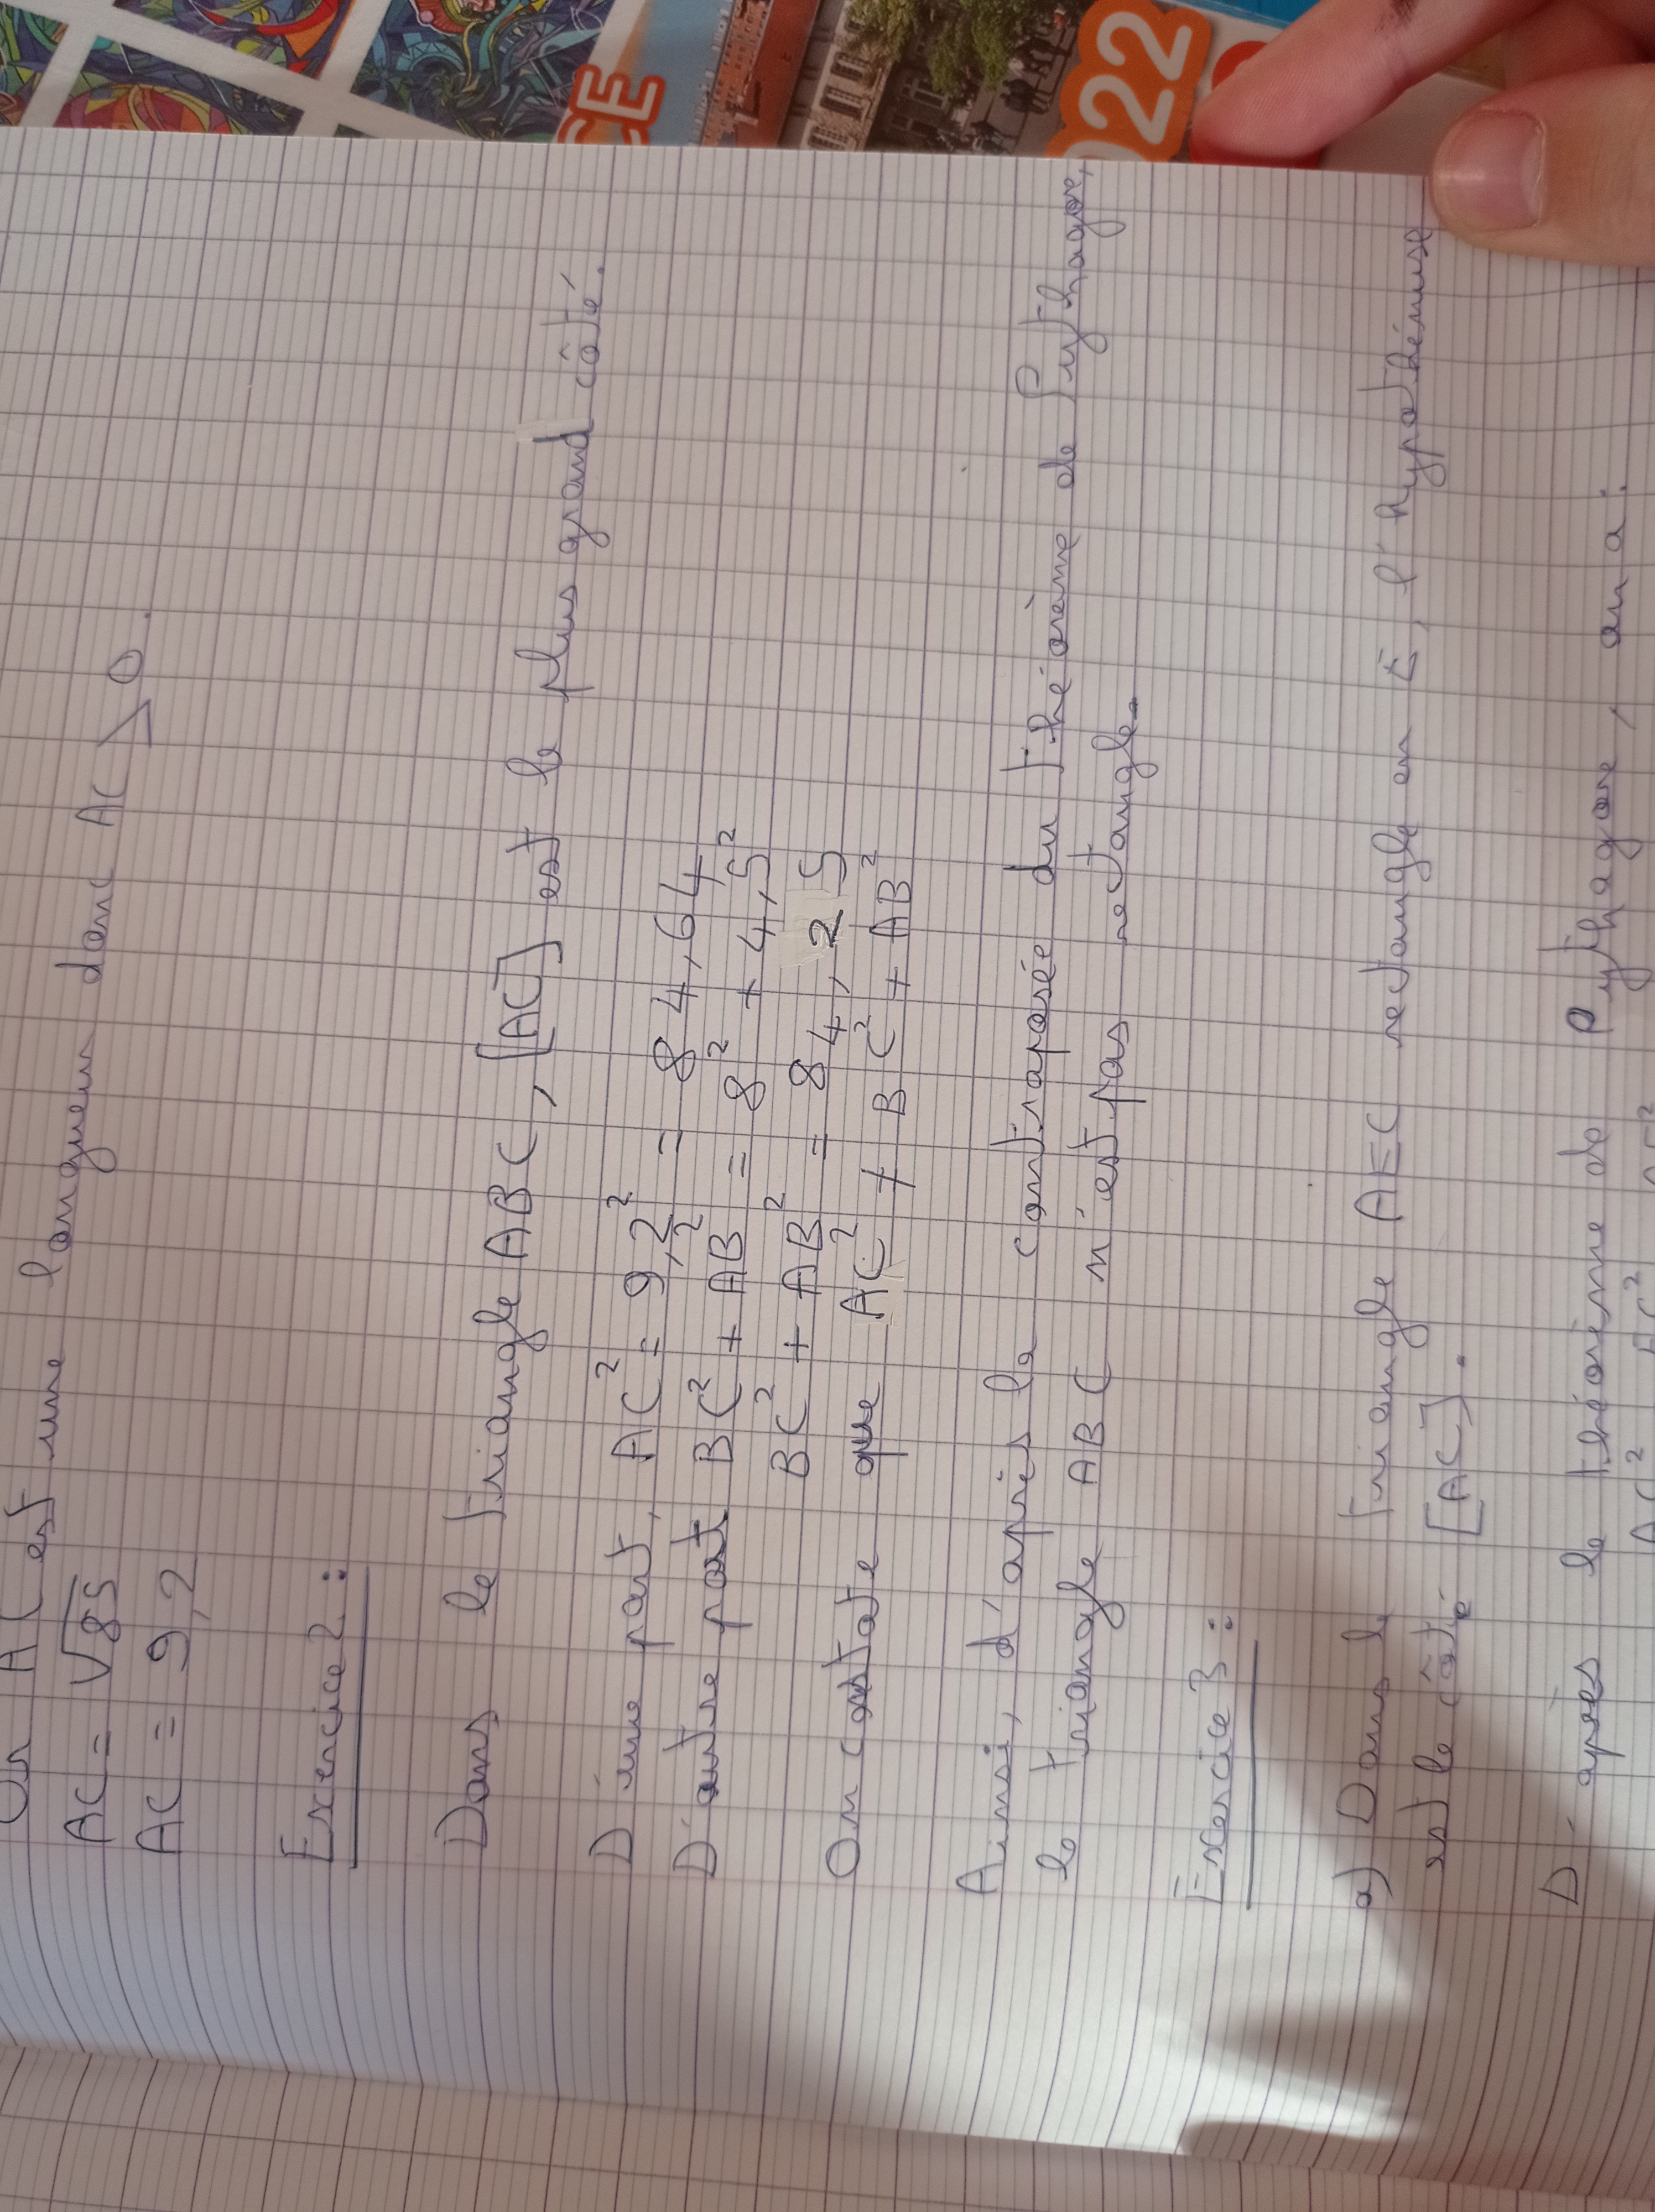 Or AC est une longueur donc AC > 0.
AC = √85
AC = 9,2
Exercice 2 :
Dans le triangle ABC, [AC] est le plus grand côté.
D'une part, AC² = 9,2² = 84,64
D'autre part BC² + AB² = 8² + 4,5²
BC² + AB² = 84,25
On constate que AC² ≠ BC² + AB²
Ainsi, d'après la contraposée du théorème de Pythagore,
le triangle ABC n'est pas rectangle.
Exercice 3 :
a) Dans le triangle AEC rectangle en E, l'hypothénuse
est le côté [AC].
D'après le théorème de Pythagore, on a :
CE
022